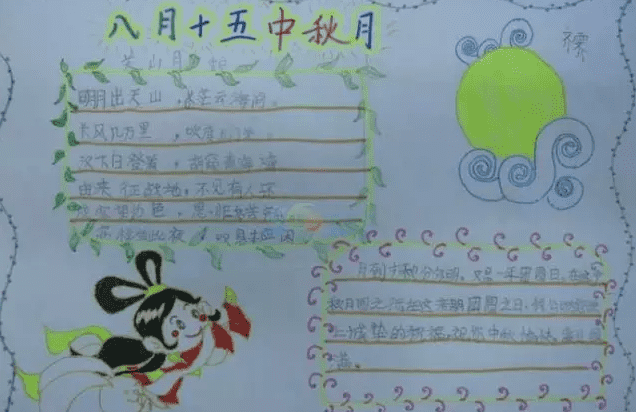 八月十五中秋月
关山月
明月出天山，苍茫云海间。
长风几万里，吹度
汉下白登道，胡窥青海湾
由来征战地，不见有人还
望边色，思归多苦
此夜，叹息未应闲
月到中秋分外明，又是一年团圆日，在这个
秋月圆之际在这 团圆之日，
上诚垫的祝福，祝你中秋愉快，事儿圆
满。